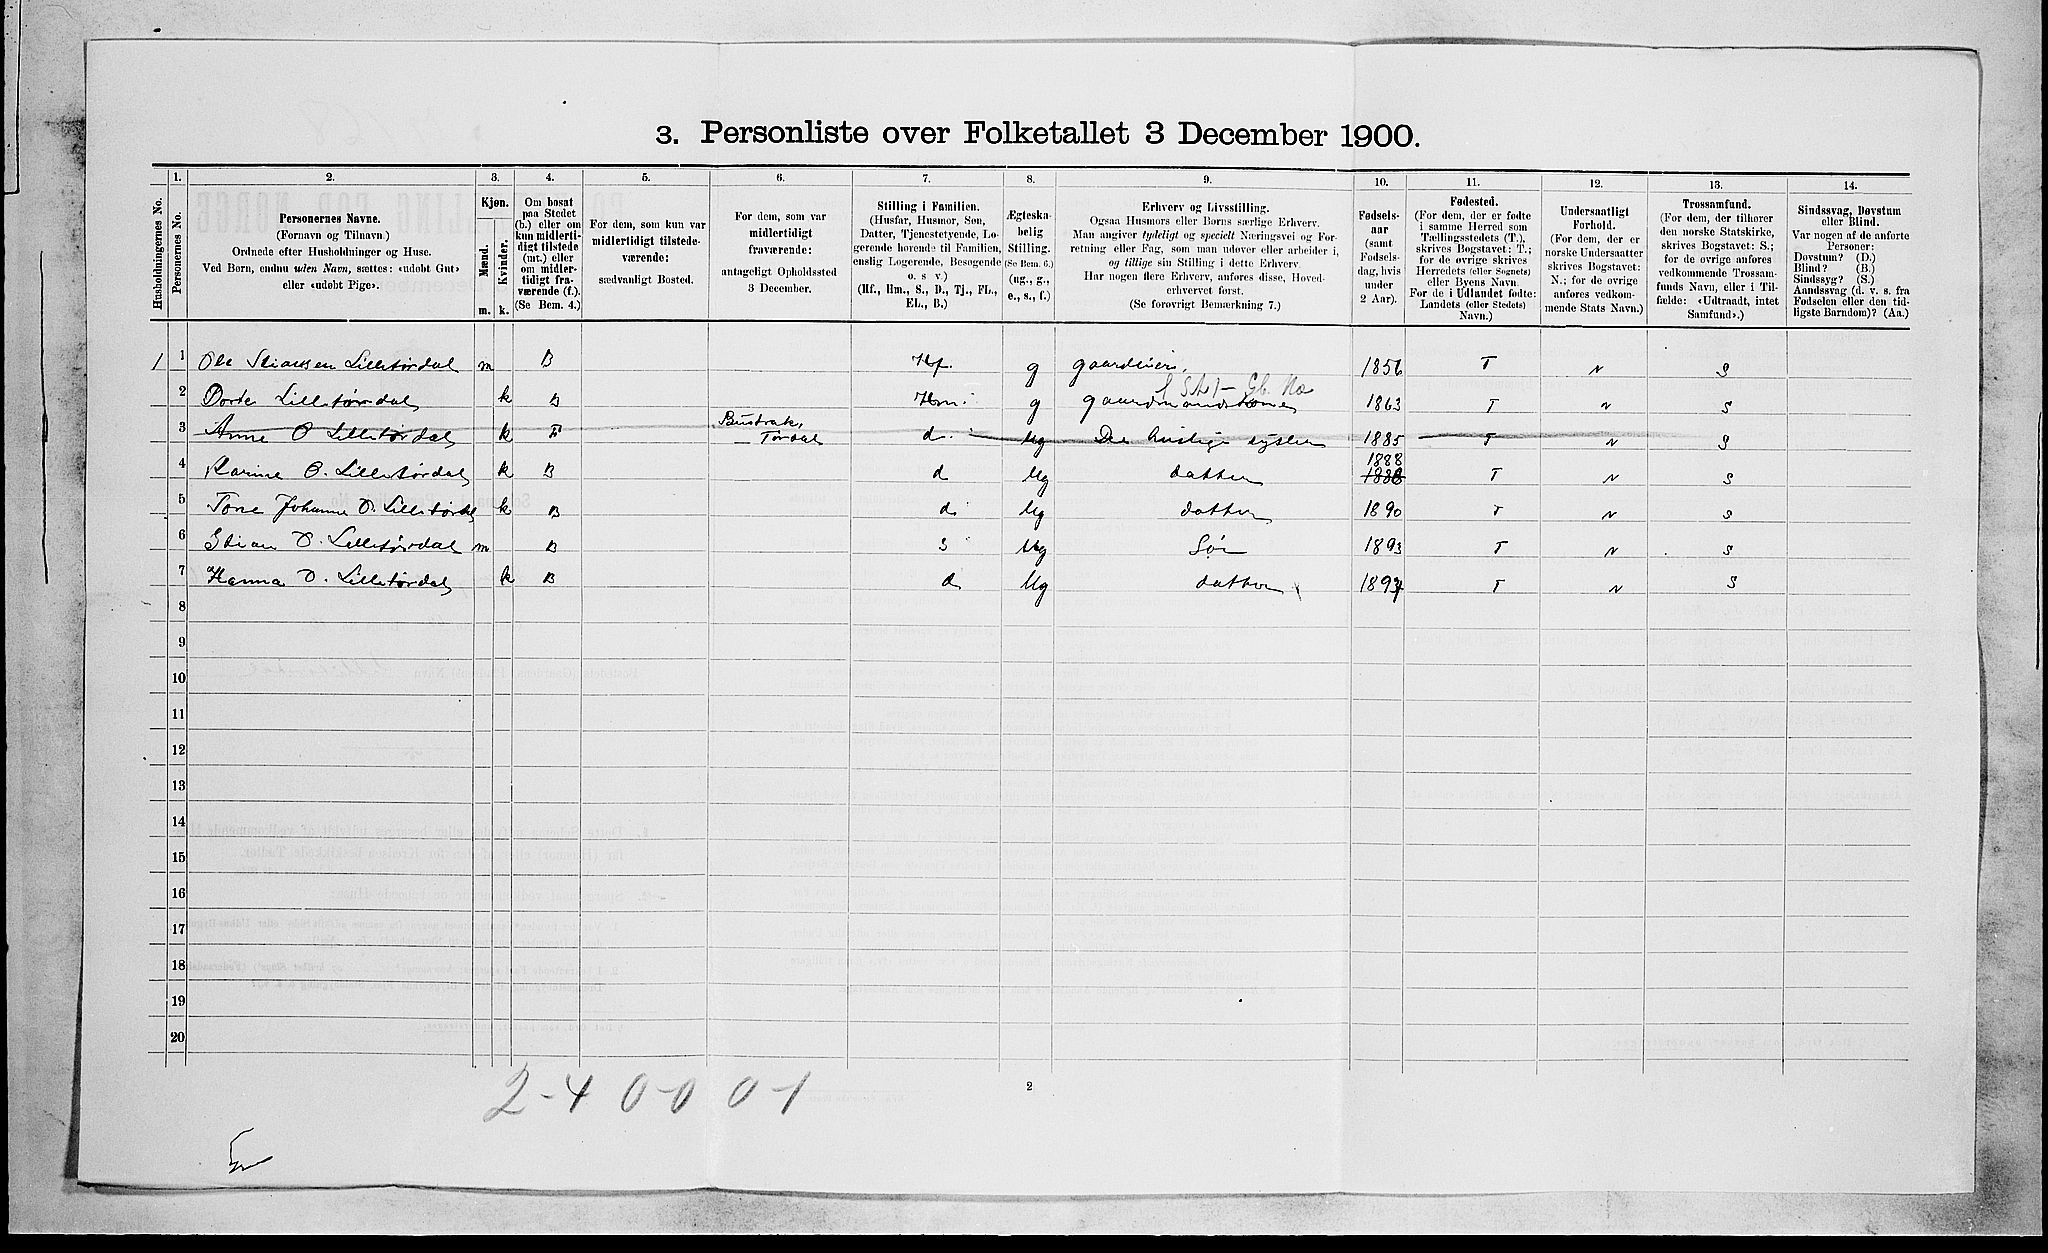 3. Personliste over Folketallet 3 December 1900.
Husholdningernes No.
1.
Personernes No.
2.
Personernes Navne.
(Fornavn og Tilnavn.)
Ordnede efter Husholdninger og Huse.
Ved Børn, endnu uden Navn, sættes: «udøbt Gut»
eller «udøbt Pige».
3.
Kjøn.
Mænd.
Kvinder.
m.
k.
4.
Om bosat
paa Stedet
(b.) eller om
kun midlerti-
digt tilstede
(mt.) eller
om midler-
tidigt fra-
værende (f.).
(Se Bem. 4.)
5.
For dem, som kun var
midlertidigt tilstede-
værende:
sædvanligt Bosted.
6.
For dem, som var
midlertidigt
fraværende:
antageligt Opholdssted
3 December.
7.
Stilling i Familien.
(Husfar, Husmor, Søn,
Datter, Tjenestetyende, Lo-
gerende hørende til Familien,
enslig Logerende, Besøgende
o. s. v.)
(Hf., Hm., S., D., Tj., FL.,
EL., B.)
8.
Ægteska-
belig
Stilling.
(Se Bem. 6.)
(ug., g.,
e., s., f.)
9.
Erhverv og Livsstilling.
Ogsaa Husmors eller Børns særlige Erhverv.
Man angiver tydeligt og specielt Næringsvei og For-
retning eller Fag, som man udøver eller arbeider i,
og tillige sin Stilling i dette Erhverv.
Har nogen flere Erhverv, anføres disse, Hoved-
erhvervet først.
(Se forøvrigt Bemærkning 7.)
10.
Fødsels-
aar
(samt
Fødsels-
dag, hvis
under
2 Aar).
11.
Fødested.
(For dem, der er fødte
i samme Herred som
Tællingsstedets (T.),
skrives Bogstavet: T.;
for de øvrige skrives
Herredets (eller Sognets)
eller Byens Navn.
For de i Udlandet fødte:
Landets (eller Stedets)
Navn.)
12.
Undersaatligt
Forhold.
(For dem, der er
norske Undersaatter
skrives Bogstavet:
N.; for de øvrige
anføres vedkom-
mende Stats Navn.)
13.
Trossamfund.
(For dem, der tilhører
den norske Statskirke,
skrives Bogstavet: S.;
for de øvrige anføres
vedkommende Trossam-
funds Navn, eller i Til-
fælde: «Udtraadt, intet
Samfund».)
14.
Sindssvag, Døvstum
eller Blind.
Var nogen af de anførte
Personer:
Døvstum? (D.)
Blind? (B.)
Sindssyg? (S.)
Aandssvag (d. v. s. fra
Fødselen eller den tid-
ligste Barndom)? (Aa.)
1 1 Ole Stiansen Lilletørdal m B Hf. g gaardeier, 1856 T N S
2 Dorte Lilletørdal k B Hm. g gaardmandskone 1863 T N S
3 Anne O Lilletørdal k F Tørdal d. Ug De huslige sysler 1885 T N S
1888
4 Karine O. Lilletørdal k B d Ug datter T N S
5 Tone Johanne O. Lilletørdal k B d. Ug datter 1890 T N S
6 Stian O. Lilletørdal m B S Ug Søn 1893 T N S
7 Hanna O. Lilletørdal k B d Ug datter 1897 T N S
8
9
10
11
12
13
14
15
16
17
18
19
20
2-4 0-0 0-1
2